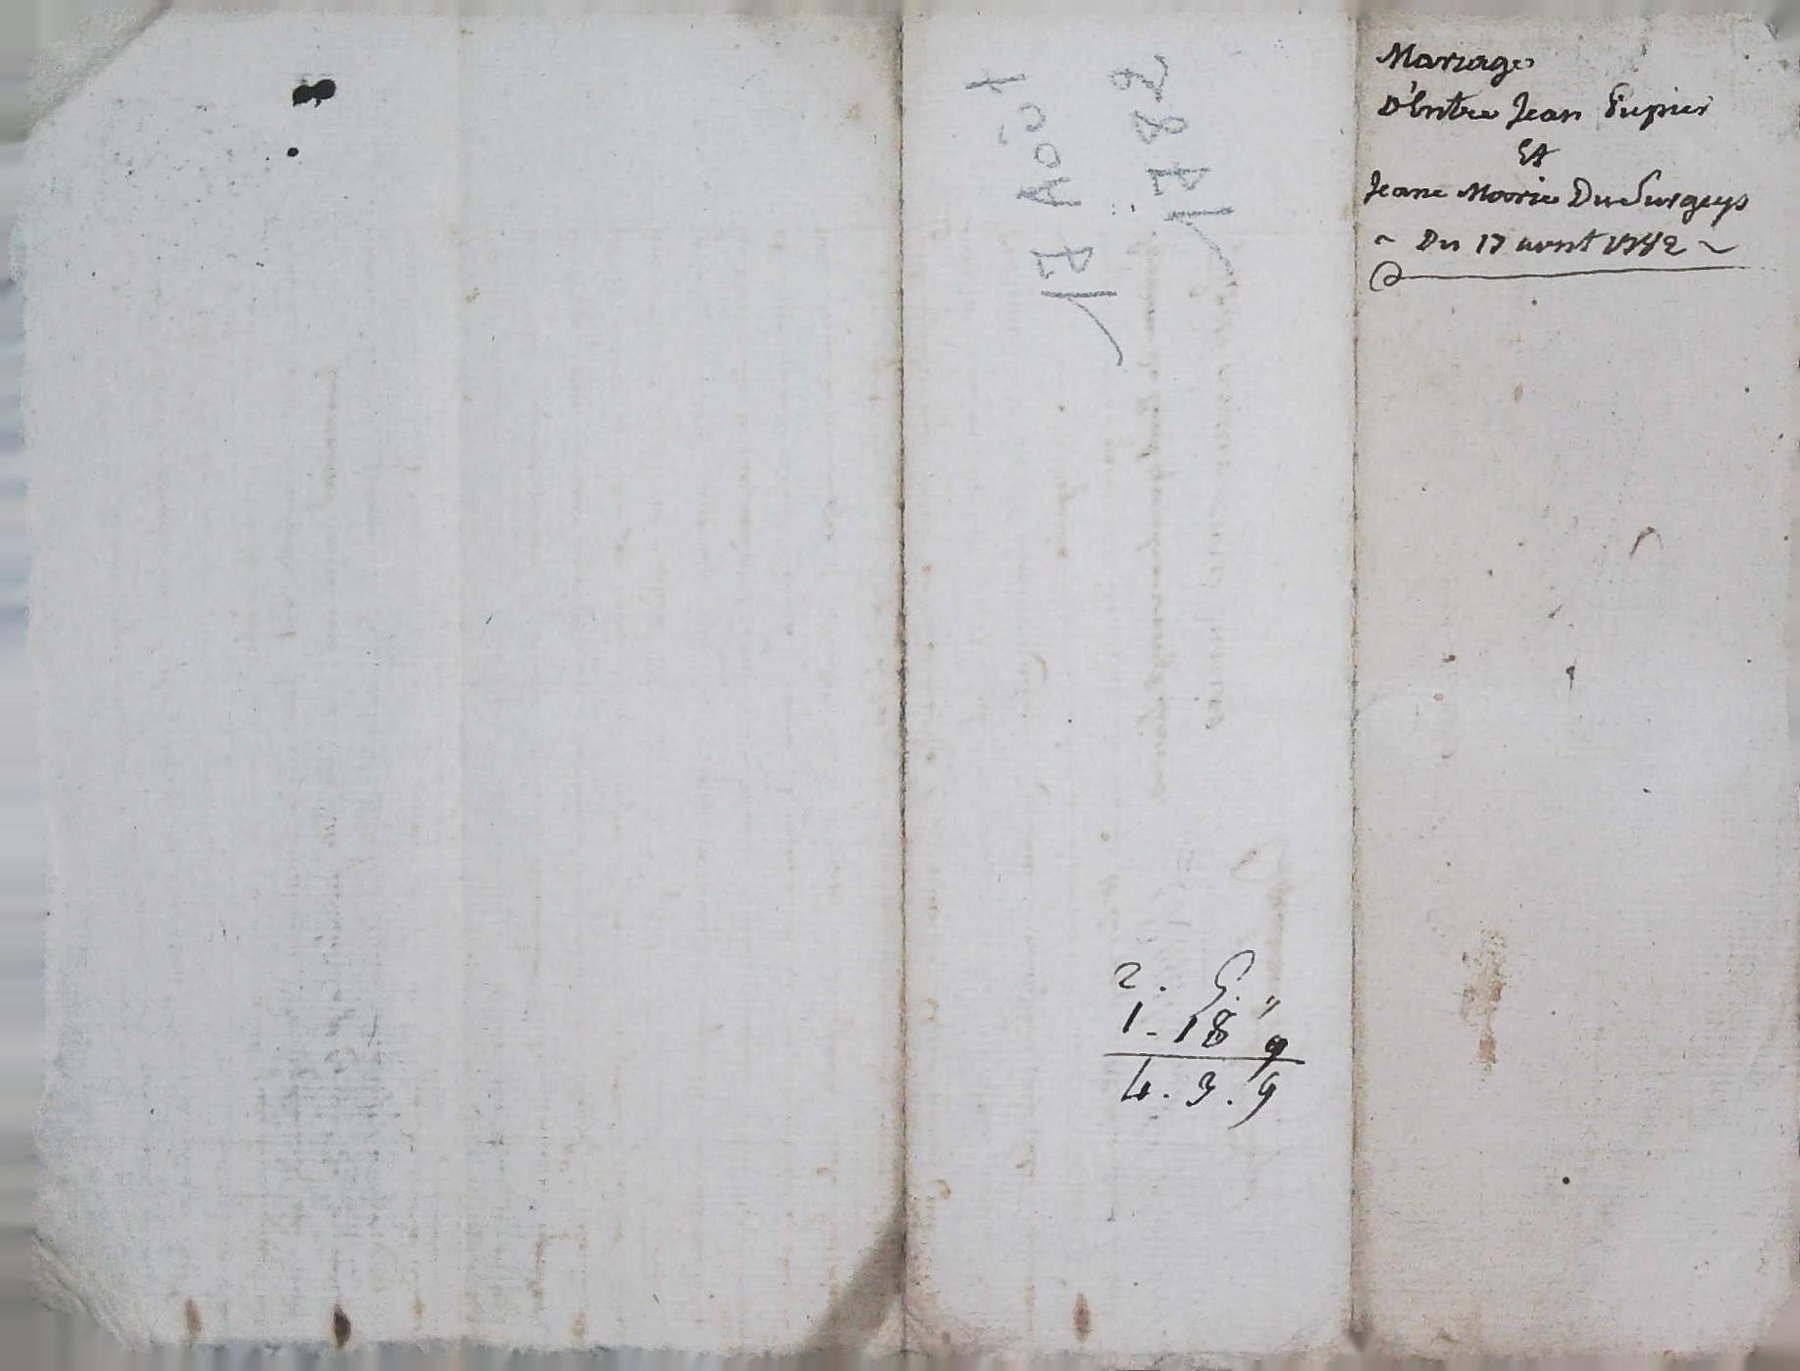 Mariage
D'Entre Jean Pupier
Et
Jeane Marie DuSurgeys
~ Du 17 aout 1782 ~
17 Août
1782
2. 5. "
1 - 18 9
4. 3. 9